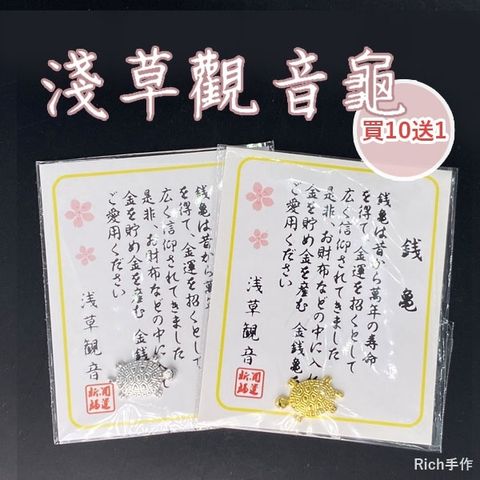 淺草觀音龜
買10送1
銭亀は昔から萬
を得て、金運を招くとして
広く信仰されてきました
是非、お財布などの中に入
金を貯め金を産む 金銭
ご愛用ください
浅草観音
開運
祈福
銭亀
銭亀は昔から萬年の寿命
を得て、金運を招くとして
広く信仰されてきました
是非、お財布などの中に入れ
金を貯め金を産む 金銭亀
ご愛用ください
浅草観音
開運
祈福
Rich手作